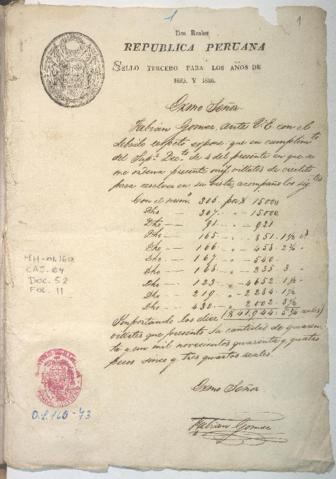 1
1
Dos Reales
REPUBLICA PERUANA
SELLO TERCERO PARA LOS AÑOS DE
1825 Y 1826.
Exmo Señor
Fabian Gomez ante V.E. con el
debido respeto espone que en cumplim.to
del Sup.or Dec.to de 4 del presente en que se
me ordena presente mis villetes de credito
para
Con el num.o 306 por $ 15000
Dho — 307 " " 15000
Dho — 91 " " 921
Dho — 165 " " 851 1½
Dho — 166 " " 453 2¾
Dho — 167 " " 540
Dho — 235 3
Dho — 123
Dho — 219
Dho — 430 2102
Importando los diez ($ 41,944 5¾ reales)
villetes que presento la cantidad de quaren-
ta a un mil novecientos quarenta y quatro
pesos cinco y tres quartos reales
Exmo Señor
Fabian Gomez
CAJ. 64
DOC. 52
FOL. 11
O.L. 160-43